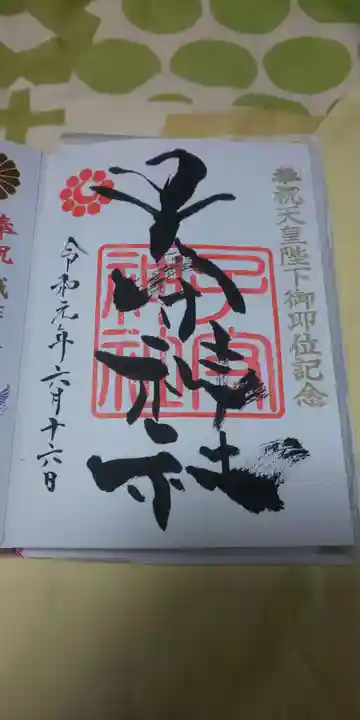 奉祝天皇陛下御即位記念
子守神社
子守
神社
令和元年六月十六日
奉祝